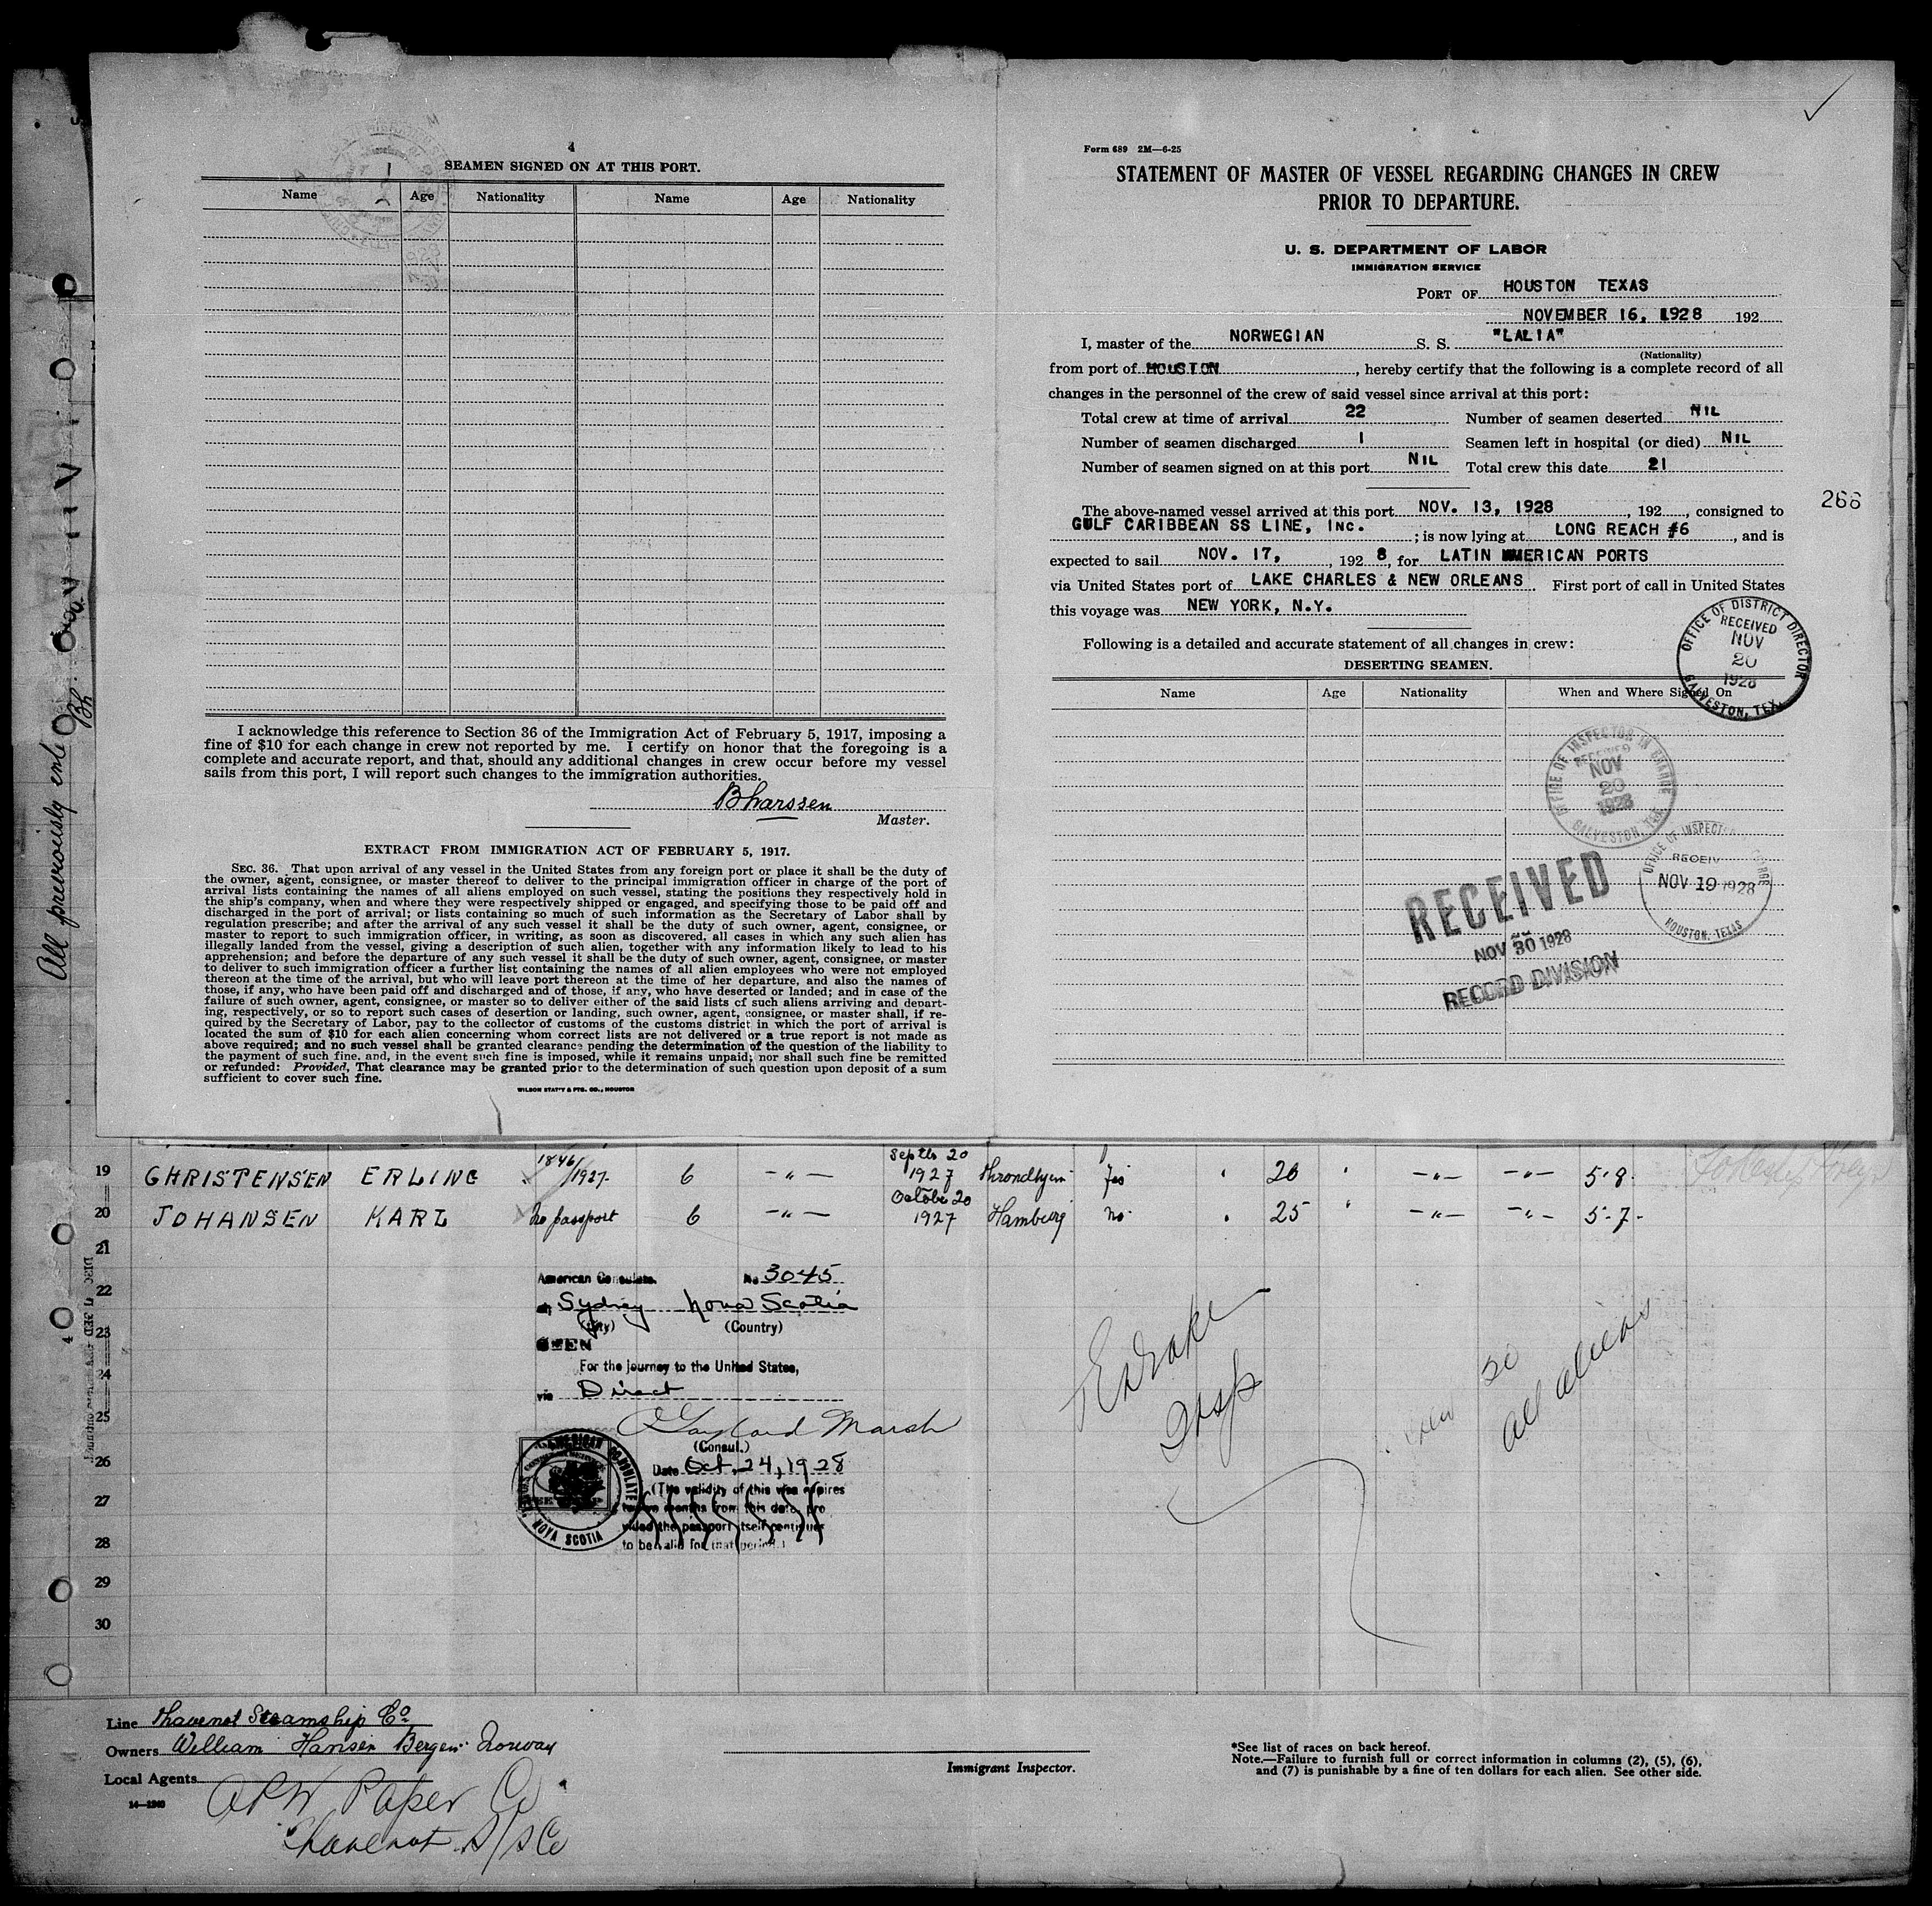 4
SEAMEN SIGNED ON AT THIS PORT.
Name Age Nationality Name Age Nationality
I acknowledge this reference to Section 36 of the Immigration Act of February 5, 1917, imposing a
fine of $10 for each change in crew not reported by me. I certify on honor that the foregoing is a
complete and accurate report, and that, should any additional changes in crew occur before my vessel
sails from this port, I will report such changes to the immigration authorities.
Master.
EXTRACT FROM IMMIGRATION ACT OF FEBRUARY 5, 1917.
SEC. 36. That upon arrival of any vessel in the United States from any foreign port or place it shall be the duty of
the owner, agent, consignee, or master thereof to deliver to the principal immigration officer in charge of the port of
arrival lists containing the names of all aliens employed on such vessel, stating the positions they respectively hold in
the ship's company, when and where they were respectively shipped or engaged, and specifying those to be paid off and
discharged in the port of arrival; or lists containing so much of such information as the Secretary of Labor shall by
regulation prescribe; and after the arrival of any such vessel it shall be the duty of such owner, agent, consignee, or
master to report to such immigration officer, in writing, as soon as discovered, all cases in which any such alien has
illegally landed from the vessel, giving a description of such alien, together with any information likely to lead to his
apprehension; and before the departure of any such vessel it shall be the duty of such owner, agent, consignee, or master
to deliver to such immigration officer a further list containing the names of all alien employees who were not employed
thereon at the time of the arrival, but who will leave port thereon at the time of her departure, and also the names of
those, if any, who have been paid off and discharged and of those, if any, who have deserted or landed; and in case of the
failure of such owner, agent, consignee, or master so to deliver either of the said lists of such aliens arriving and depart-
ing, respectively, or so to report such cases of desertion or landing, such owner, agent, consignee, or master shall, if re-
quired by the Secretary of Labor, pay to the collector of customs of the customs district in which the port of arrival is
located the sum of $10 for each alien concerning whom correct lists are not delivered or a true report is not made as
above required; and no such vessel shall be granted clearance pending the determination of the question of the liability to
the payment of such fine, and, in the event such fine is imposed, while it remains unpaid; nor shall such fine be remitted
or refunded: Provided, That clearance may be granted prior to the determination of such question upon deposit of a sum
sufficient to cover such fine.
WILSON STAT'Y & PTG. CO., HOUSTON
Form 689 2M—6-25
STATEMENT OF MASTER OF VESSEL REGARDING CHANGES IN CREW
PRIOR TO DEPARTURE.
U. S. DEPARTMENT OF LABOR
IMMIGRATION SERVICE
PORT OF HOUSTON TEXAS
NOVEMBER 16, 1928 192
I, master of the NORWEGIAN S. S. "LALIA"
(Nationality)
from port of HOUSTON, hereby certify that the following is a complete record of all
changes in the personnel of the crew of said vessel since arrival at this port:
Total crew at time of arrival 22 Number of seamen deserted NIL
Number of seamen discharged 1 Seamen left in hospital (or died) NIL
Number of seamen signed on at this port NIL Total crew this date 21
266
The above-named vessel arrived at this port NOV. 13, 1928, 192, consigned to
GULF CARIBBEAN SS LINE, INC. ; is now lying at LONG REACH #6, and is
expected to sail NOV. 17, , 192 8, for LATIN AMERICAN PORTS
via United States port of LAKE CHARLES & NEW ORLEANS. First port of call in United States
this voyage was NEW YORK, N.Y.
Following is a detailed and accurate statement of all changes in crew:
DESERTING SEAMEN.
Name Age Nationality When and Where Signed On
OFFICE OF DISTRICT DIRECTOR
RECEIVED
NOV
20
1928
GALVESTON, TEX.
OFFICE OF INSPECTOR IN CHARGE
RECEIVED
NOV
20
1928
GALVESTON, TEX.
RECEIV
NOV 19 1928
HOUSTON, TEXAS
RECEIVED
NOV 30 1928
RECORD DIVISION
All previously
19 CHRISTENSEN ERLING 1846/1927 6 —"— Septbr 20 1927 Throndhjem yes 26 " —"— —"— 5-8
20 JOHANSEN KARL No passport 6 —"— October 20 1927 Hamburg no 25 " —"— —"— 5-7
21
22
23
24
25
26
27
28
29
30
American Consulate. No 3045
at Sydney Nova Scotia
(City) (Country)
SEEN
For the journey to the United States,
via Direct
Gaylord Marsh
(Consul.)
Date Oct. 24, 1928
(The validity of this visa expires
twelve months from this date, pro
vided the passport itself continues
to be valid for that period.)
AMERICAN CONSULATE
NOVA SCOTIA
Insp
20
all aliens
Line Thavenot Steamship Co
Owners William Hansen Bergen Norway
Local Agents
APW Paper Co
Thavenot S/S Co
14—1240
Immigrant Inspector.
*See list of races on back hereof.
Note.—Failure to furnish full or correct information in columns (2), (5), (6),
and (7) is punishable by a fine of ten dollars for each alien. See other side.